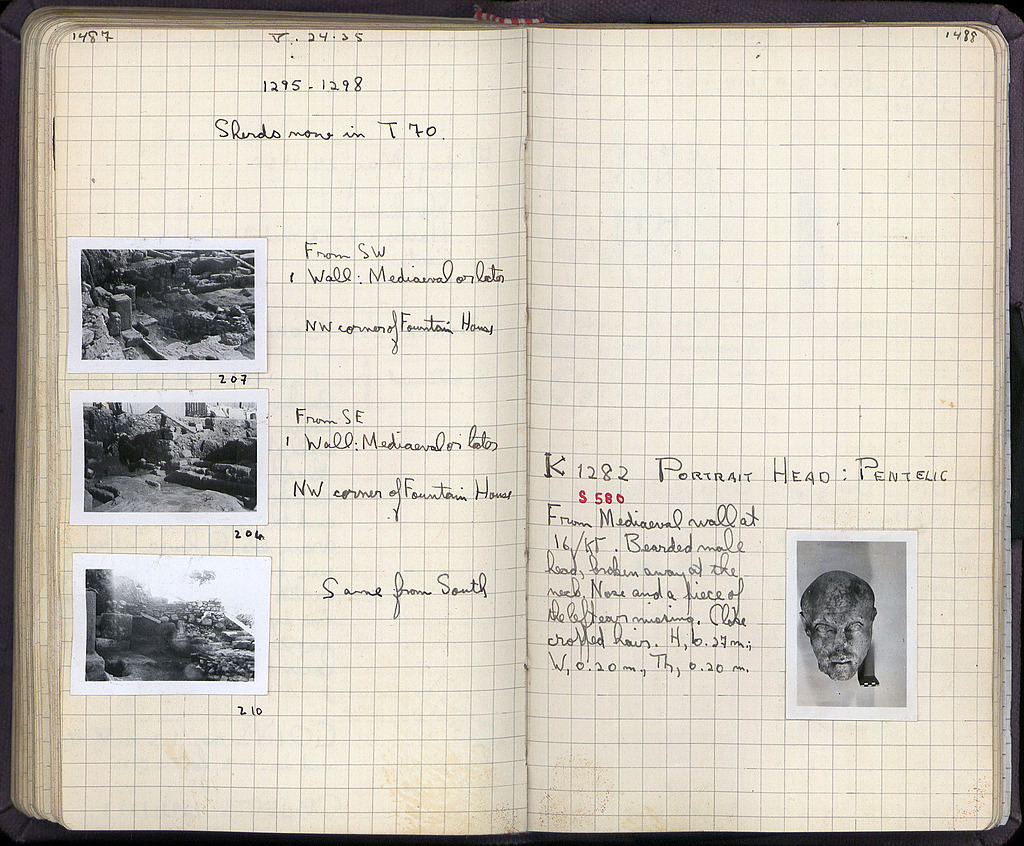 1487
V. 24.35
1295 - 1298
Sherds none in T 70.
From SW
1 Wall: Mediaeval or later
NW corner of Fountain House
207
From SE
1 Wall: Mediaeval or later
NW corner of Fountain House
Same from South
210
1488
K 1282 PORTRAIT HEAD: PENTELIC
S 580
From Mediaeval wall at
16/ . Bearded male
head, broken away at the
neck. Nose and a piece of
the left ear missing. Close
cropped hair. H, 0.27 m.;
W, 0.20 m., Th, 0.20 m.